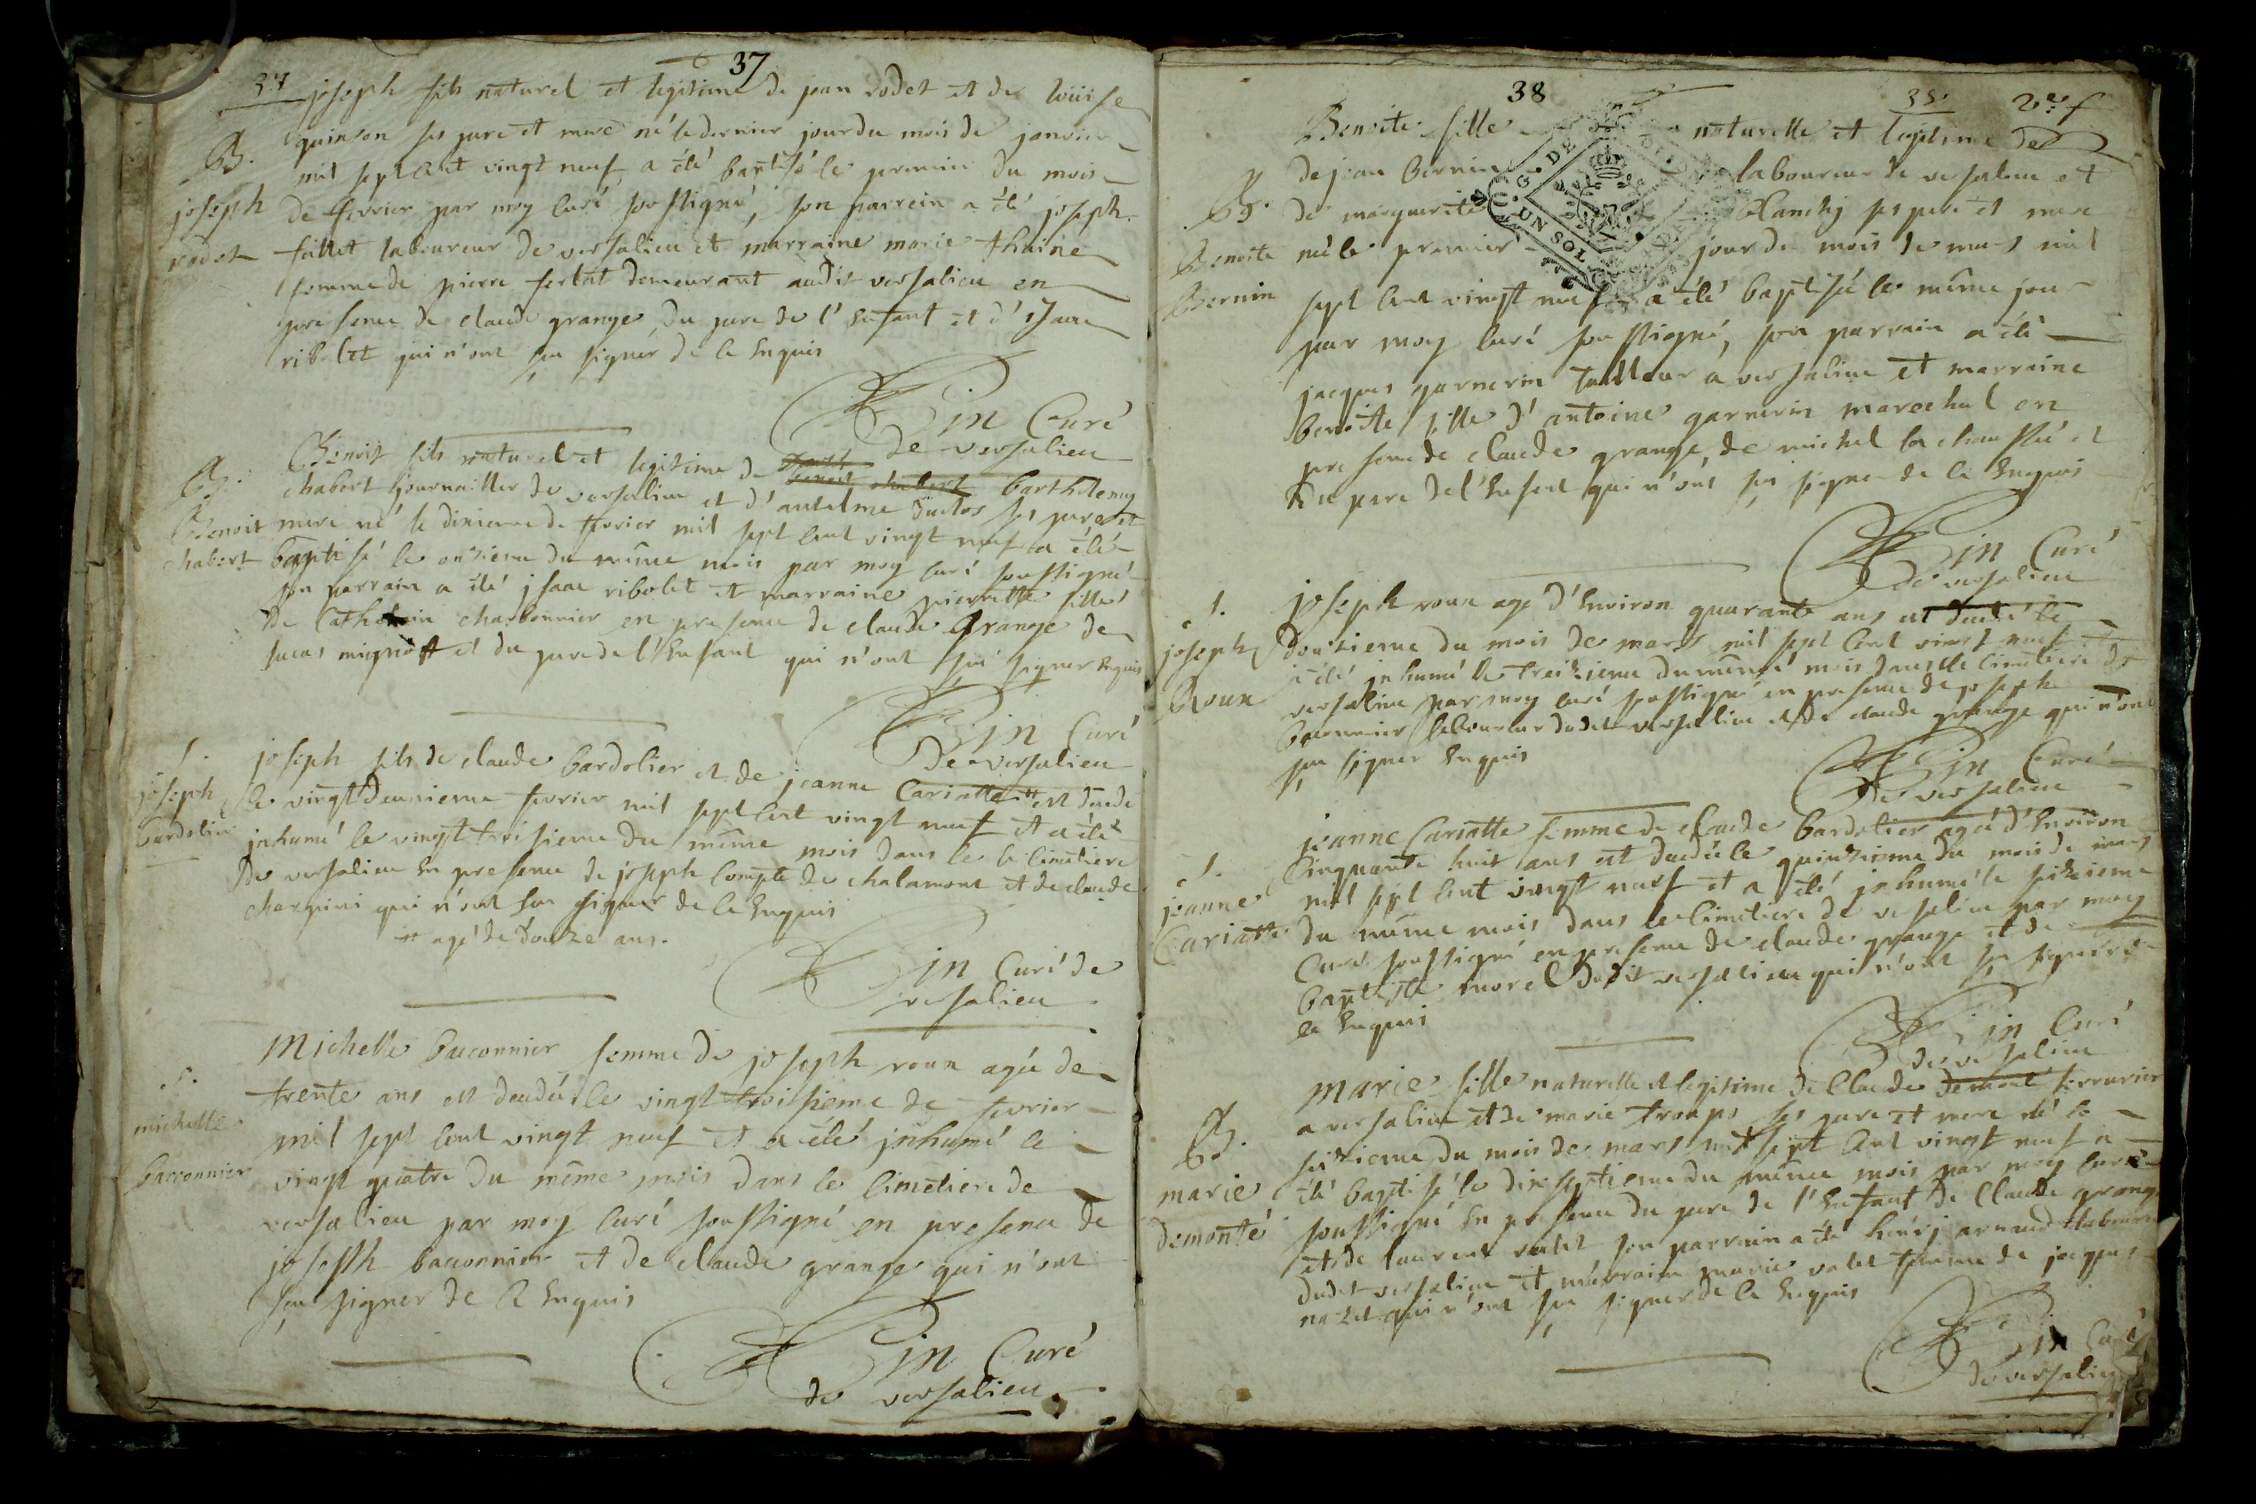 37
37
joseph fils naturel et legitime de jean rodet et de loüise
B. quinson ses pere et mere né le dernier jour du mois de janvier
mil sept cent vingt neuf a été baptisé le premier du mois
joseph de fevrier par moy curé soussigné, son parrein a été joseph
rodet fillet laboureur de versalieu et marraine marie thaine
femme de pierre ferlat demeurant audit versalieu en
presence de claude grange, du pere de l'enfant et d'isaac
ribolet qui n'ont sçu signer de ce enquis
Gin Curé
de versalieu
Benoit fils naturel et legitime de benoit chabert barthelemy
B. chabert journaillier de versalieu et d'antelme duclos ses pere et
Benoit mere né le dixieme de fevrier mil sept cent vingt neuf a été
chabert baptisé le onzieme du même mois par moy curé soussigné
son parrain a été jsaac ribolet et marraine pierrette fille
de Catherin charbonnier en presence de claude Grange de
lucas mignot et du pere de l'enfant qui n'ont sçu signer enquis
Gin Curé
De versalieu
S. joseph fils de claude bardolier et de jeanne Cariatte # est decedé
joseph le vingt deuxieme fevrier mil sept cent vingt neuf et a été
bardolier jnhumé le vingt troisieme du même mois dans le le cimetiere
de versalieu en presence de joseph compte de chalamont et de claude
charpini qui n'ont sçu signer de ce enquis
# agé de douze ans.
Gin Curé de
versalieu
Michelle baconnier femme de joseph roux agée de
S. trente ans est decedée le vingt troisieme de fevrier
michelle mil sept cent vingt neuf et a été jnhumé le
baconnier vingt quatre du même mois dans le cimetiere de
versalieu par moy curé soussigné en presence de
joseph baconnier et de claude grange qui n'ont
sçu signer de ce enquis
Gin Curé
de versalieu
38
38
2e f
G. DE
UN SOL
Benoite fille naturelle et legitime de
de jean bernin laboureur de versalieu et
B. de marguerite blanchj ses pere et mere
Benoite née le premier jour du mois de mars mil
Bernin sept cent vingt neuf a été baptisée le même jour
par moy curé soussigné, son parrain a été
jacques garnerin tailleur a versalieu et marraine
benoite fille d'antoine garnerin marechal en
presence de claude grange de michel la chaussée et
du pere de l'enfant qui n'ont sçu signer de ce enquis
Gin Curé
de versalieu
S. joseph roux agé d'environ quarante ans est decedé le
joseph douzieme du mois de mars mil sept cent vingt neuf et
Roux a été jnhumé le treizieme du même mois dans le cimetiere de
versalieu par moy curé soussigné en presence de joseph
baconnier laboureur dudit versalieu et de claude grange qui n'ont
sçu signer enquis
Gin Curé
de versalieu
S. jeanne Cariatte femme de claude bardolier agée d'environ
jeanne Cinquante huit ans est decedée le quinzieme du mois de mars
Cariatte mil sept cent vingt neuf et a été jnhumé le seizieme
du même mois dans le cimetiere de versalieu par moy
Curé soussigné en presence de claude grange et de
baptiste morel dudit versalieu qui n'ont sçu signer de
ce enquis
Gin Curé
de versalieu
marie fille naturelle et legitime de Claude demont serrurier
B. a versalieu et de marie troups ses pere et mere né le
marie seizieme du mois de mars mil sept cent vingt neuf a
demonté été baptisé le dix septieme du même mois par moy curé
soussigné en presence du pere de l'enfant de Claude grange
et de laurent valet son parrain a été henrj arnaud laboureur
dudit versalieu et marraine marie valet femme de jacques
nazet qui n'ont sçu signer de ce enquis
Gin Curé
de versalieu